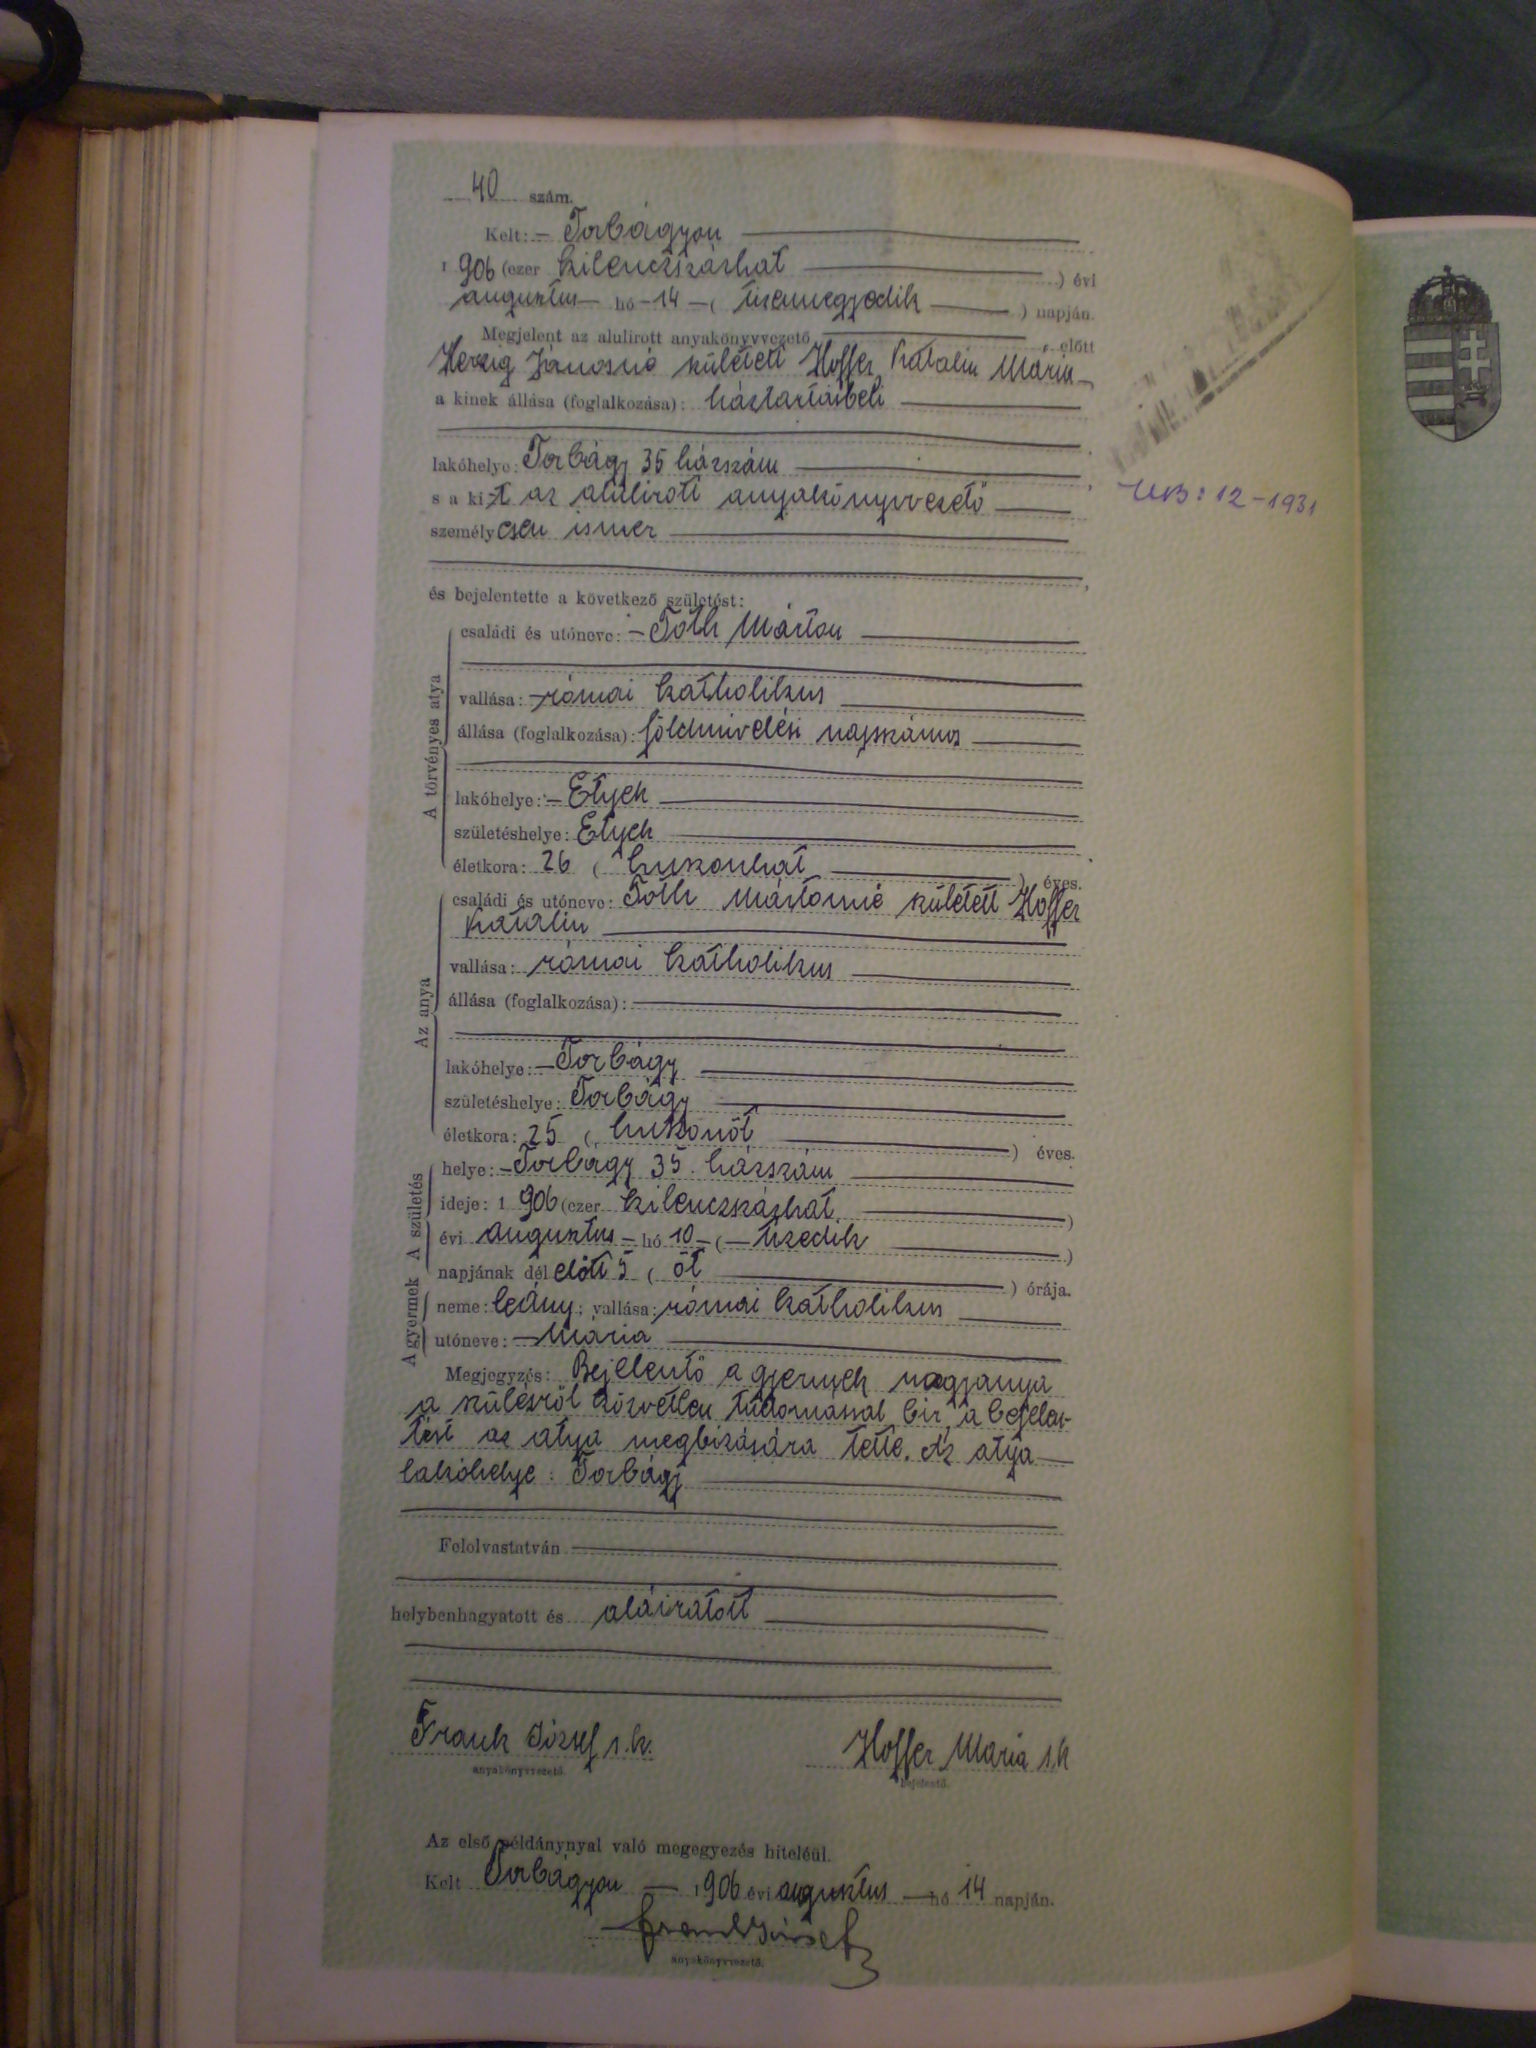 40 szám.
Kelt: – Torbágyon
1 906 (ezer kilenczszázhat ) évi
augusztus – hó – 14 – ( tizennegyedik ) napján.
Megjelent az alulirott anyakönyvvezető előtt
Herzig Jánosné született Hoffer Katalin Mária
a kinek állása (foglalkozása): háztartásbeli
lakóhelye: Torbágy 35 házszám
s a kit az alulirott anyakönyvvezető
személyesen ismer
és bejelentette a következő születést:
A törvényes atya
családi és utóneve: – Tóth Márton
vallása: – római katholikus
állása (foglalkozása): földmivelési napszámos
lakóhelye: – Etyek
születéshelye: Etyek
életkora: 26 ( huszonhat ) éves.
Az anya
családi és utóneve: Tóth Mártonné született Hoffer
Katalin
vallása: római katholikus
állása (foglalkozása):
lakóhelye: – Torbágy
születéshelye: Torbágy
életkora: 25 ( huszonöt ) éves.
A születés
helye: – Torbágy 35. házszám
ideje: 1 906 (ezer kilenczszázhat )
évi augusztus – hó 10 – ( – tizedik )
napjának dél előtt 5 ( öt ) órája.
A gyermek
neme: leány; vallása: római katholikus
utóneve: – Mária
Megjegyzés: Bejelentő a gyermek nagyanya
a szülésről közvetlen tudomással bir, a bejelen-
tést az atya megbizására tette. Az atya
lakóhelye: Torbágy
Felolvastatván
helybenhagyatott és aláiratott
Frank József s.k. Hoffer Maria s.k
anyakönyvvezető bejelentő.
Az első példánynyal való megegyezés hiteléül.
Kelt Torbágyon – 1906 évi augusztus – hó 14 napján.
Frank József
anyakönyvvezető.
UB: 12 – 1931